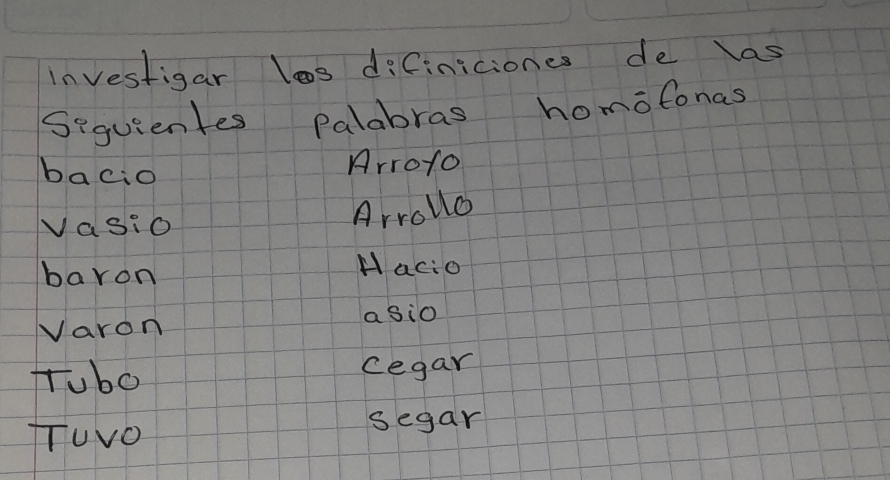 Investigar los dificiniciones de las
Siguientes palabras homófonas
bacio Arroyo
vasio Arrollo
baron Hacio
Varon asio
Tubo cegar
Tuvo segar